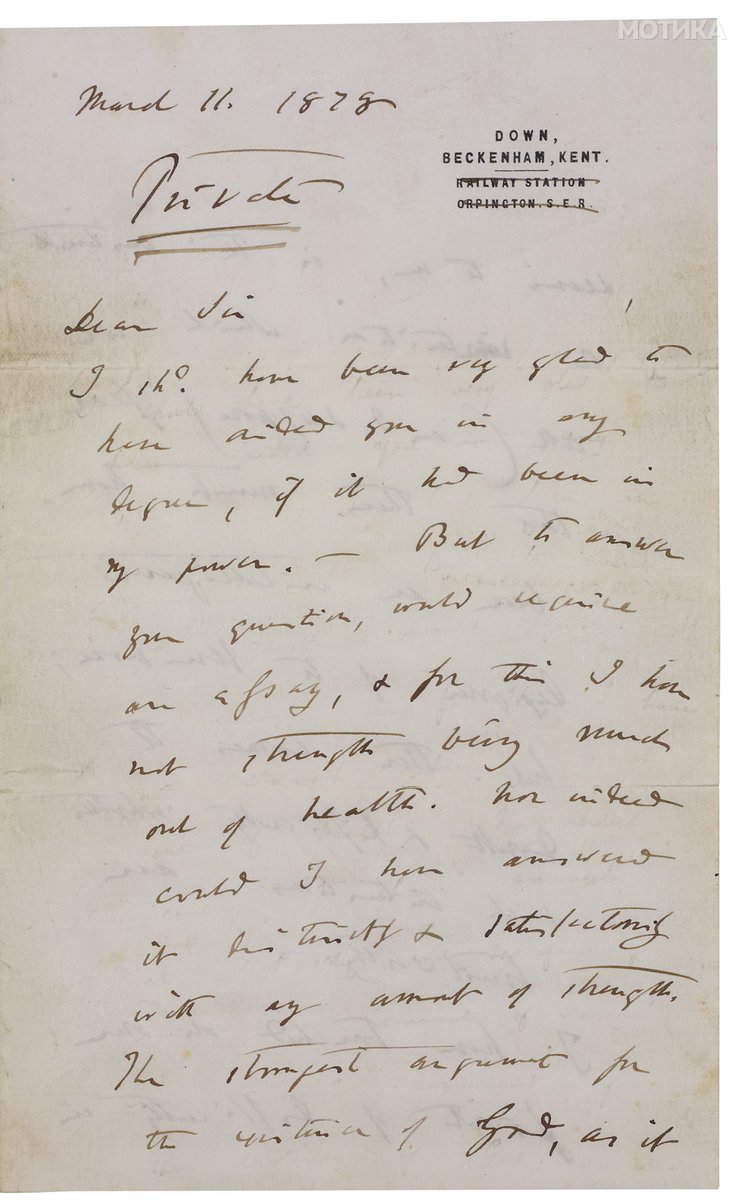 МОТИКА
March 11. 1878
DOWN,
BECKENHAM, KENT.
RAILWAY STATION
ORPINGTON. S.E.R.
Private
Dear Sir
I shd. have been very glad to
have aided you in any
degree, if it had been in
my power. — But to answer
your question, would require
an essay, & for this I have
not strength being much
out of health. Nor indeed
could I have answered
it distinctly & satisfactorily
with any amount of strength.
The strongest argument for
the existence of God, as it